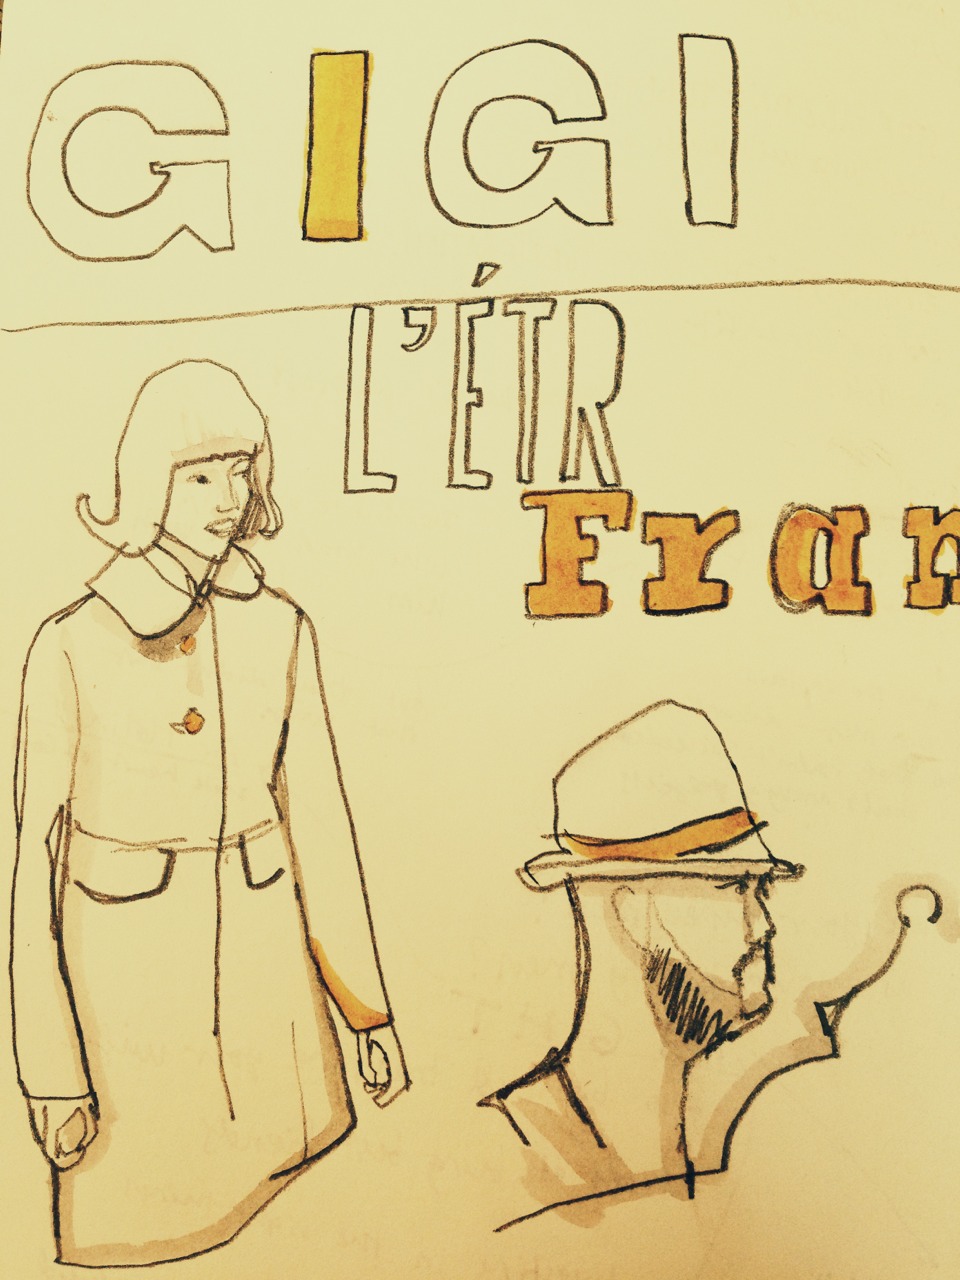 GIGI
L'ÉTR
Fran